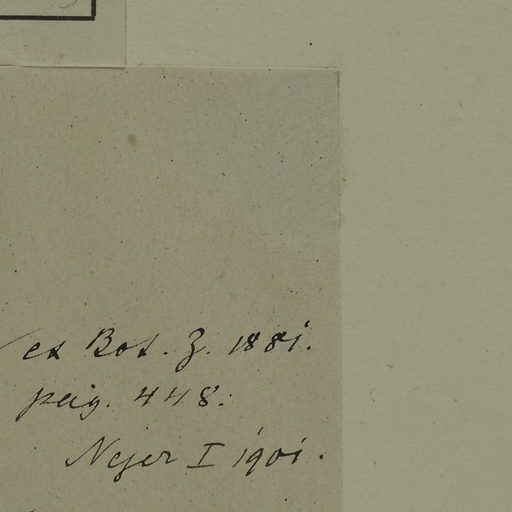 et Bot. Z. 1881.
pag. 448.
Neger I 1901.